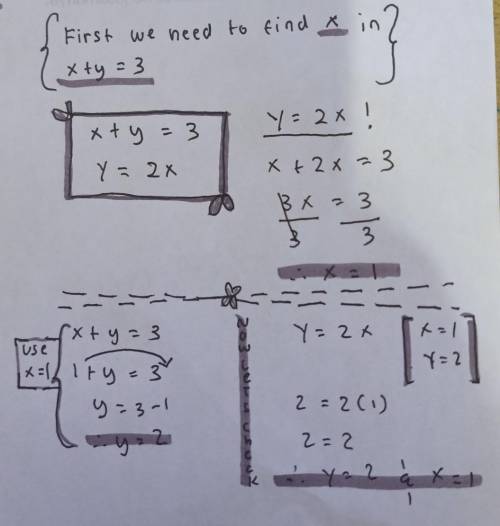 First we need to find x in
x+y = 3
x + y = 3
Y = 2x
Y = 2x !
x + 2x = 3
3x = 3
3 3
∴ x = 1
use
x=1
x + y = 3
1 + y = 3
y = 3-1
∴ y = 2
Now let's check
Y = 2x
x = 1
Y = 2
2 = 2(1)
2 = 2
∴ Y = 2 & x = 1